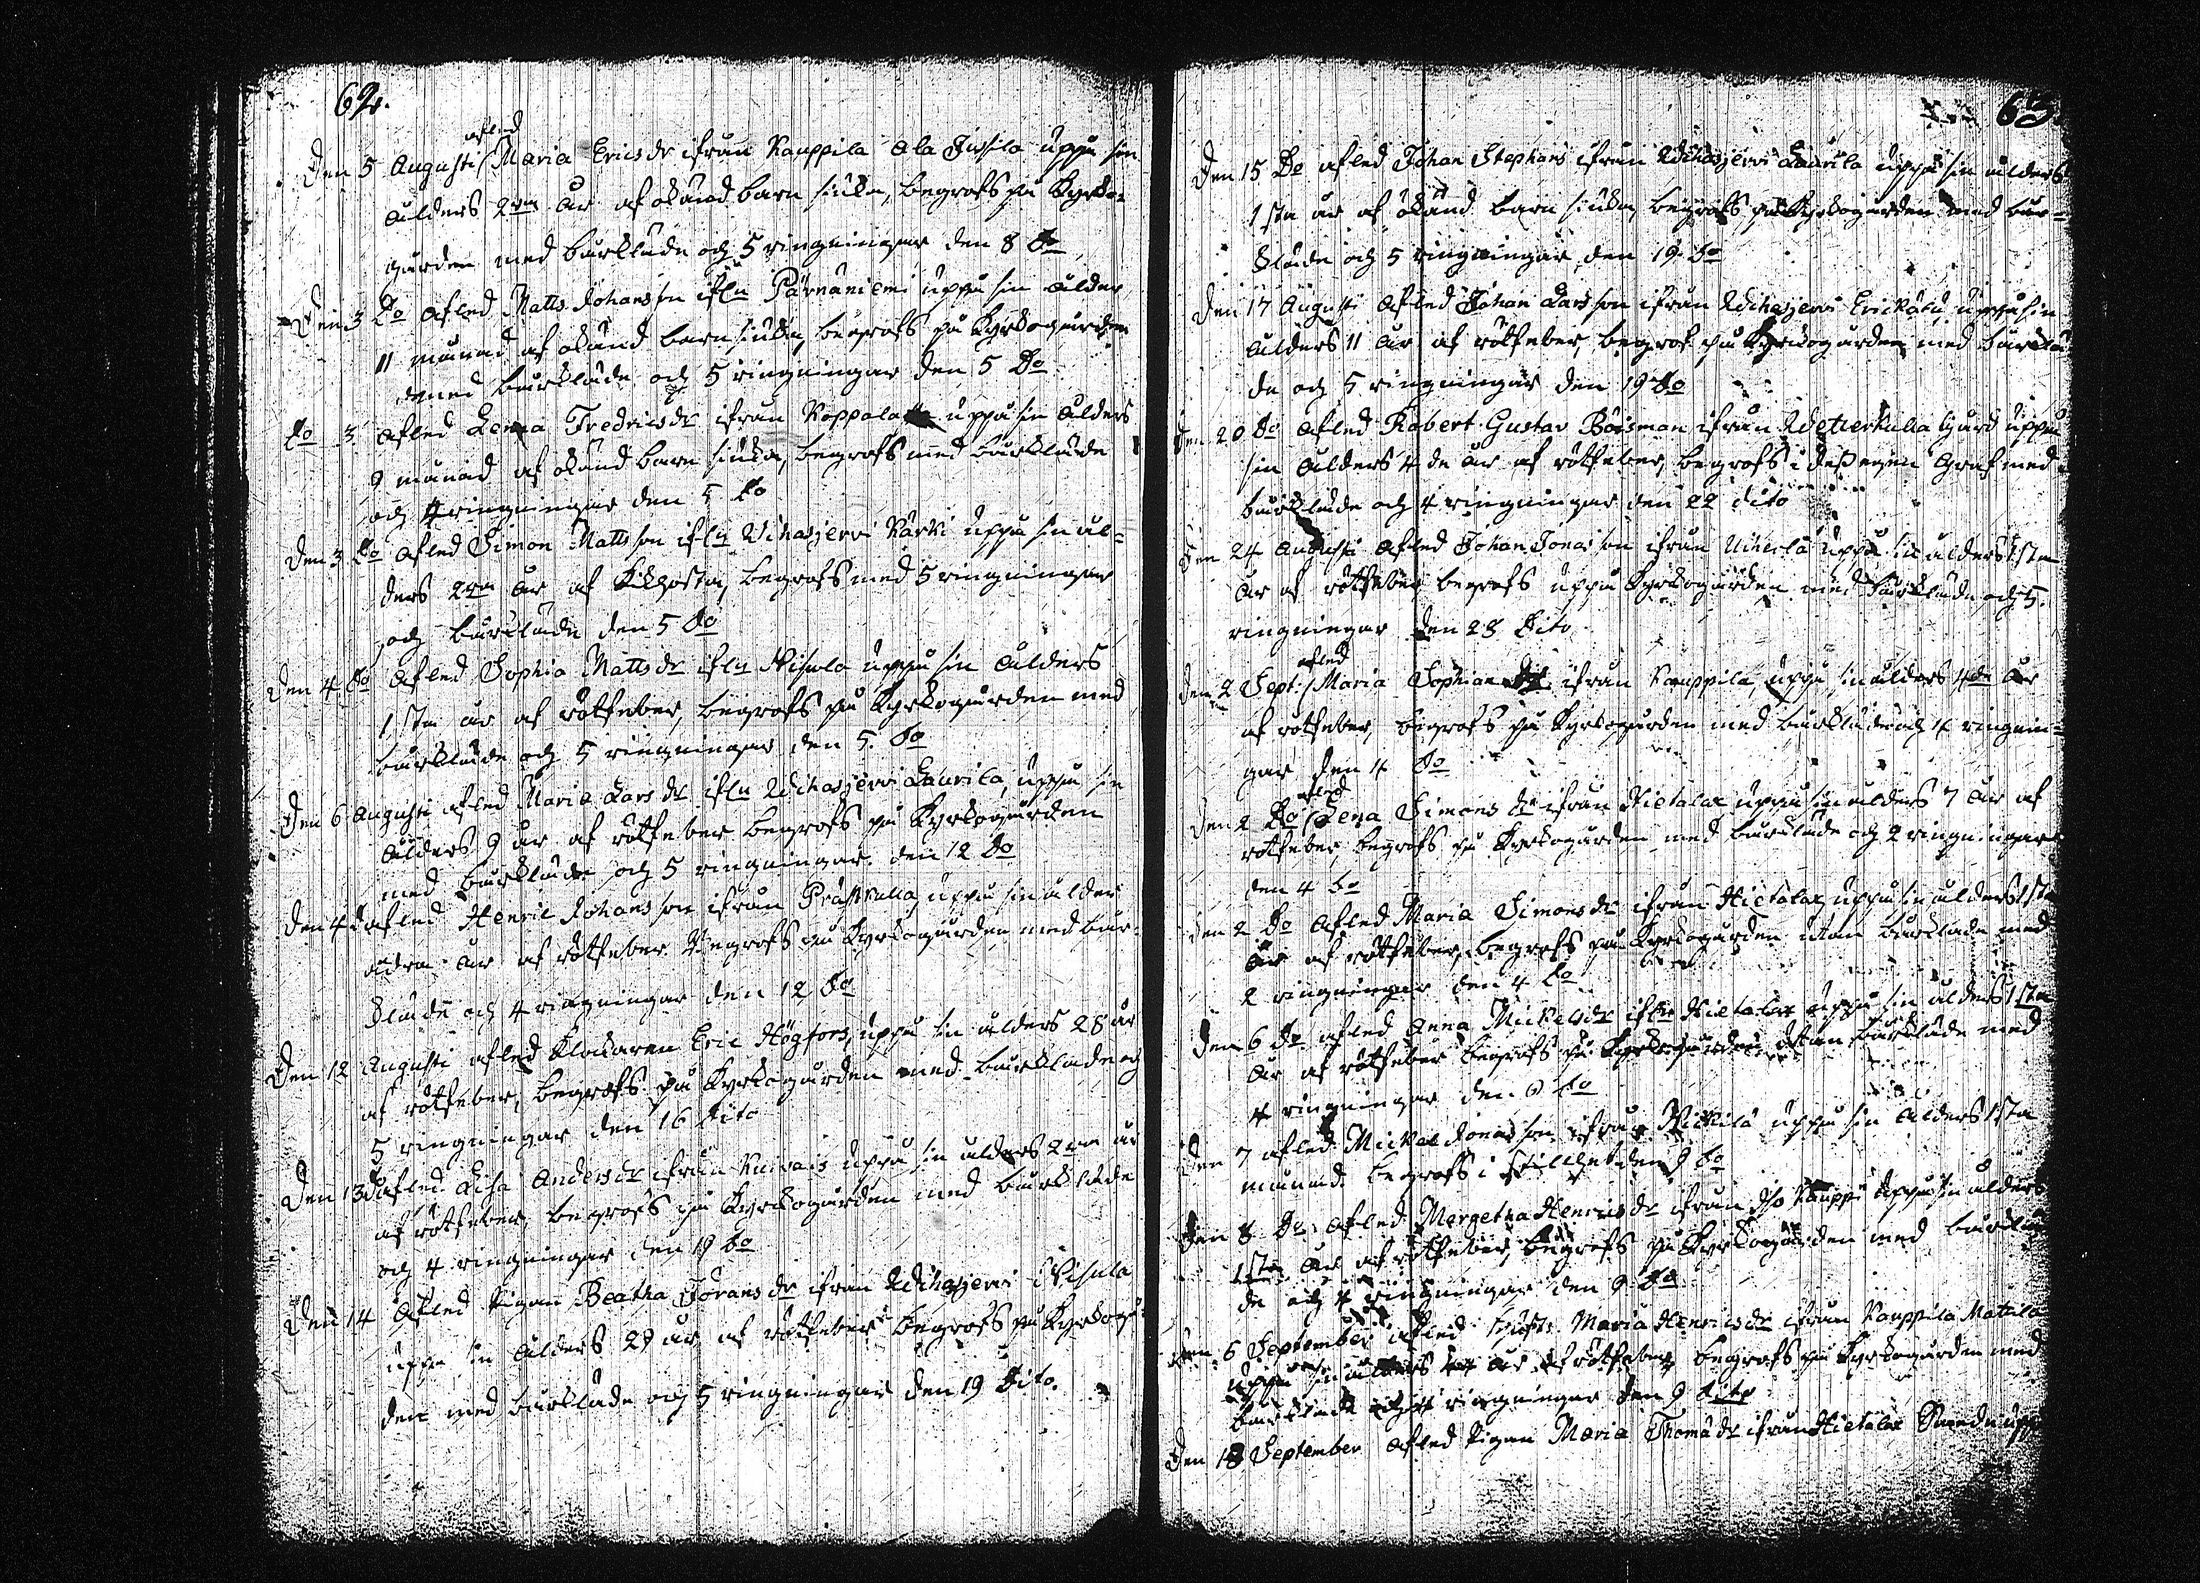 62.
afled
Den 5 Augusti / Maria Ericsdr ifrån Kauppila Ala Jussila uppå sin
ålders 2dra år af okänd barn siuka, begrofs på Kyrko-
gården med bårklädе och 5 ringningar den 8 Do
Den 3 Do Afled Matts Johansson ifrån Pärnäniemi uppå sin ålder
11 månad af okänd barn siuka, begrofs på Kyrkogården
med bårkläde och 5 ringningar den 5 Do
Do 3 Afled Lena Fredricsdr ifrån uppå sin ålders
9 månad af okänd barn siuka, begrofs med bårkläde
och 4 ringningar den 5 Do
Den 3 Do Afled Simon Mattsson ifrån Wihasjerwi Kärki uppå sin ål-
ders 2dra år af Kikhosta, begrofs med 5 ringningar
och bårkläde den 5 Do
Den 4 Do Afled Sophia Mattsdr ifrån uppå sin ålders
1sta år af rötfeber, begrofs på Kyrkogården med
bårkläde och 5 ringningar den 5. Do
Den 6 Augusti afled Maria Larsdr ifrån Wihasjerwi Laurila, uppå sin
ålders 9 år af rötfeber begrofs på Kyrkogården
med bårkläde och 5 ringningar den 12 Do
Den 4 afled Henric Johansson ifrån Prästkulla, uppå sin ålder
andra år af rötfeber begrofs på Kyrkogården med bår-
kläde och 4 ringningar den 12 Do
Den 12 Augusti afled Klockaren Eric Högfors, uppå sin ålders 28 år
af rötfeber, begrofs på Kyrkogården med bårkläde och
5 ringningar den 16 Dito
Den 13 afled Lisa Andersdr ifrån uppå sin ålders 2dra år
af rötfeber, begrofs på Kyrkogården med bårkläde
och 4 ringningar den 19 Do
Den 14 Afled Pigan Beatha Göransdr ifrån Wihasjerwi
uppå sin ålders 29 år af rötfeber begrofs på Kyrkogår
den med bårkläde och 5 ringningar den 19 Dito.
63
Den 15 Do afled Johan Stephans ifrån Wihasjerwi Laurila uppå sin ålders
1sta år af okänd barn siuka, begrofs på Kyrkogården med bår-
kläde och 5 ringningar den 19. Do
Den 17 Augusti Afled Johan Larsson ifrån Wihasjerwi uppå sin
ålders 11 år af rötfeber, begrof på Kyrkogården med bårklä
de och 5 ringningar den 19 Do
Den 20 Do Afled Robert Gustav Böisman ifrån Gård uppå
sin ålders 4de år af rötfeber, begrofs i dess egen Graf med
bårkläde och 4 ringningar den 22 dito
Den 24 Augusti Afled Johan Jonasson ifrån uppå sin ålders 1sta
år af rötfeber begrofs uppå Kyrkogården med bårkläde och 5.
ringningar den 28 Dito
afled
Den 2 Sept: / Maria Sophia ifrån Kauppila, uppå sin ålders 4de år
af rötfeber, begrofs på Kyrkogården med bårkläde och 4 ringnin-
gar den 4 Do
afled
Den 2 Do / Lena Simonsdr ifrån Hietalax uppå sin ålders 7 år af
rötfeber, begrofs på Kyrkogården med bårkläde och 2 ringningar
den 4 Do
Den 2 Do Afled Maria Simonsdr ifrån Hietalax, uppå sin ålders 1sta
år af rötfeber, begrofs på Kyrkogården utan bårkläde med
2 ringningar den 4 Do
Den 6 Do afled Anna Mickelsdr ifrån Hietalax uppå sin ålders 1sta
år af rötfeber begrofs på Kyrkogården utan bårkläde med
4 ringningar den 9 Do
Den 7 afled Mickel Jonasson ifrån uppå sin ålders 1sta
månad begrofs i stillhet den 9 Do
Den 8 Do Afled Margetha Henricsdr ifrån Kauppi uppå sin ålders
1sta år af rötfeber, begrofs på Kyrkogården med bårklä
de och 4 ringningar den 9 Do
Den 6 September afled Maria Henricsdr ifrån Kauppila Mattila
uppå sin ålders år af rötfeber, begrofs på Kyrkogården med
bårkläde och ringningar den 9 dito
Den 18 September Afled Pigan Maria Thomadr ifrån Hietalax uppå